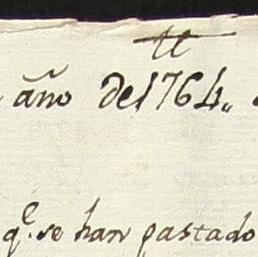 año de 1764,,
q.e se han pastado